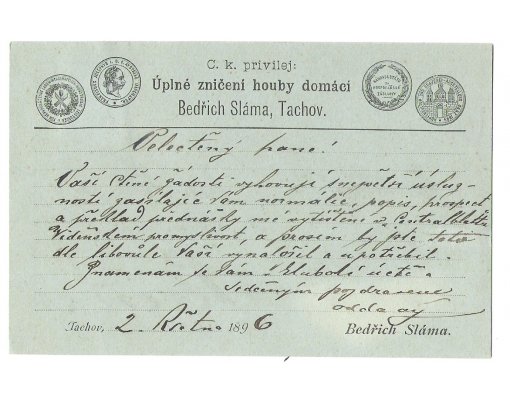 C. k. privilej:
Úplné zničení houby domácí
Bedřich Sláma, Tachov.
Velectěný pane!
Vaší ctěné žádosti vyhovuji s největší úsluž-
ností zasílaje Vám normalie, popis, prospect
a překlad přednášky mé vytištěné v "Centralblatt
Vídeňském a prosím by jste toto
dle libovůle Vaší vynaložil a upotřebil.
Znamenám se Vám v hluboké úctě
srdečným pozdravem
oddaný
Tachov, 2. Května 1896
Bedřich Sláma.